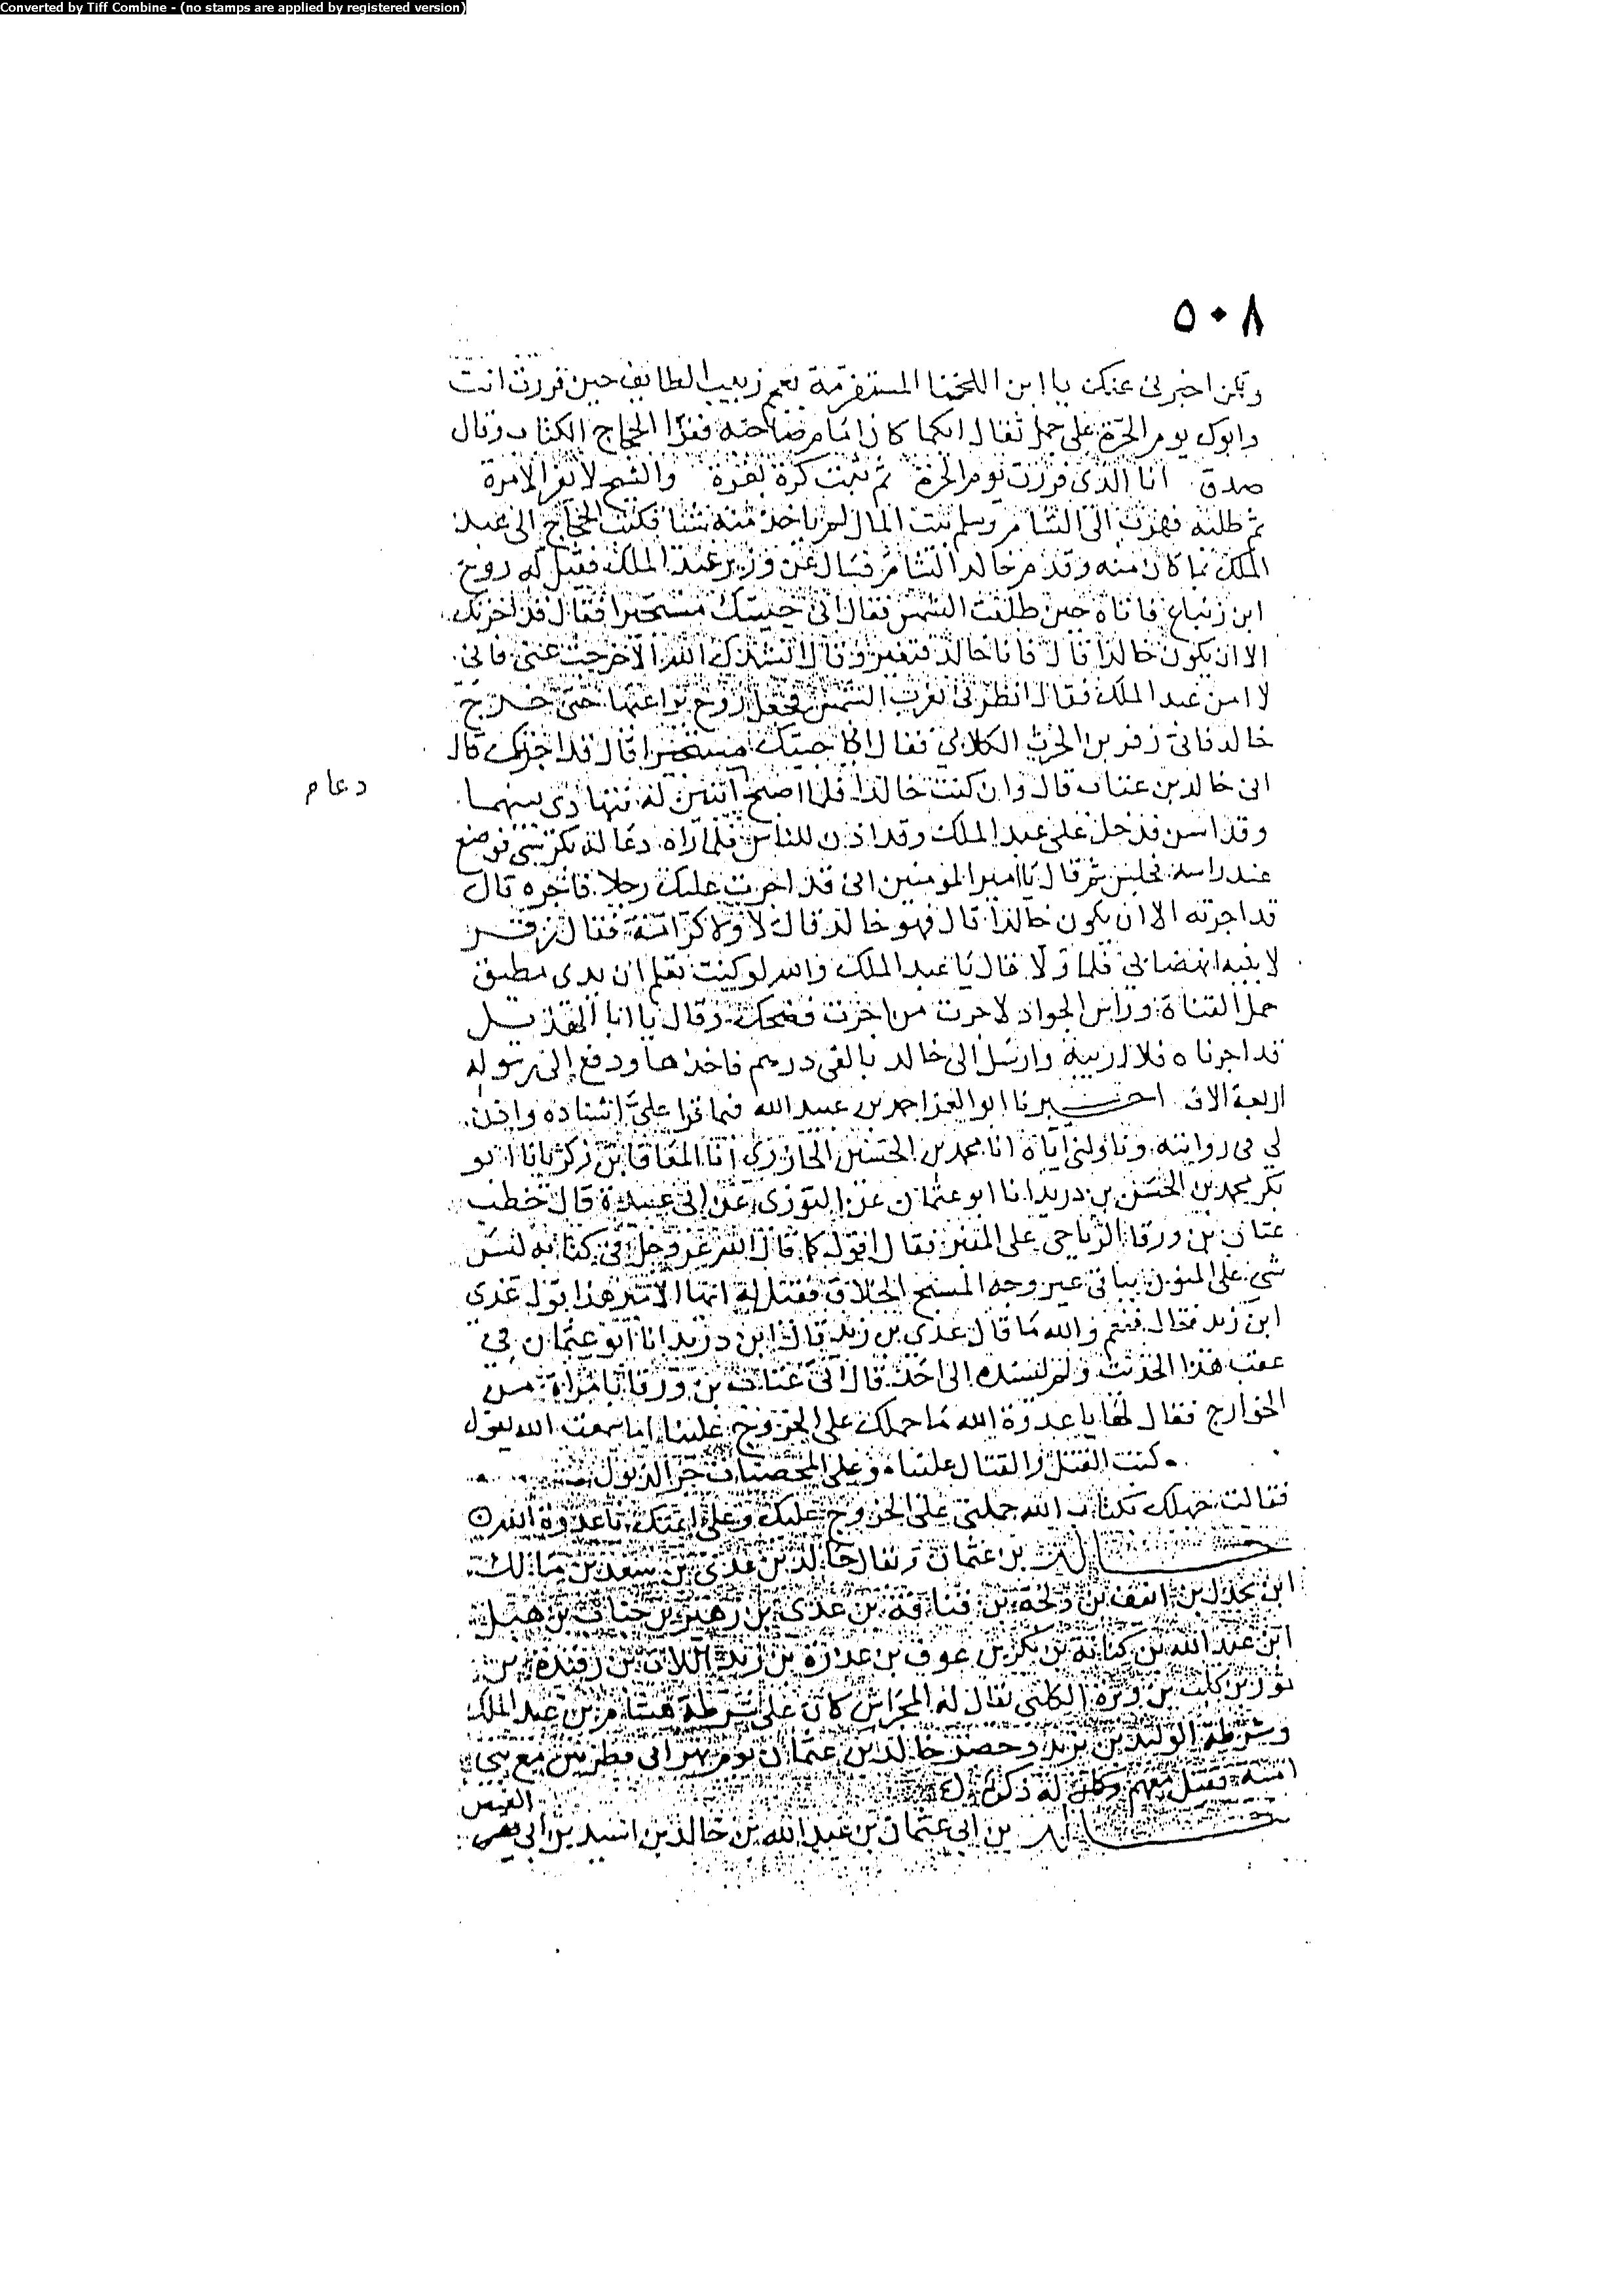 Converted by Tiff Combine - (no stamps are applied by registered version)
٥٠٨
ولكن اخبرني عنك يا ابن اللخنا المستفرمة بعجم زبيب الطايف حين فررت انت
وابوك يوم الحرة على جمل ثفال ايكما كان امام صاحبه فقرا الحجاج الكتاب وقال
صدق انا الذي فررت يوم الحرة ثم ثبت كرة بفرة والشيخ لا يفر الا مرة
ثم طلبه فهرب الى الشام وسلم بيت المال لم ياخذ منه شيئا فكتب الحجاج الى عبد
الملك بما كان منه وقدم خالد الشام فسال عن وزير عبد الملك فقيل له روح
ابن زنباع فاتاه حين طلعت الشمس فقال اني جيتك مستجيرا فقال قد اجرتك
الا ان يكون خالدا قال فانا خالد فتغير وقال انشدك الله الا خرجت عني فاني
لا امن عبد الملك فقال انظرني تغرب الشمس فجعل روح يراعيها حتى خرج
خالد فاتى زفر بن الحرث الكلابي فقال اني جيتك مستجيرا قال قد اجرتك قال
اني خالد بن عتاب قال وان كنت خالدا فلما اصبح ابنين له فتهادى بينهما
دعا م
وقد اسن فدخل على عبد الملك وقد اذن للناس فلما راه دعا له بكرسي فوضع
عند راسه فجلس ثم قال يا امير المومنين اني قد اجرت عليك رجلا فاجره قال
قد اجرته الا ان يكون خالدا قال فهو خالد قال لا ولا كرامة فقال زفر
لابنيه انهضاني فلما ولا قال يا عبد الملك والله لو كنت تعلم ان يدي تطيق
حمل القناة وراس الجواد لاجرت من اجرت فضحك وقال يا ابا الهذيل
قد اجرناه فلا ارينه وارسل الى خالد بالفي درهم فاخذها ودفع الى رسوله
اربعة الاف اخبرنا ابو العز احمد بن عبيد الله فيما قرا علي اسناده واذن
لي في روايته وناولني اياه انا محمد بن الحسين الجازري انا المعافا بن زكريا نا ابو
بكر محمد بن الحسن بن دريد انا ابو عثمان عن التوزي عن ابي عبيدة قال خطب
عتاب بن ورقا الرياحي على المنبر فقال اقول كما قال الله عز وجل في كتابه ليس
شي على المنون بباقي غير وجه المسبح الخلاق فقيل له ايها الامير هذا يقول عدي
ابن زيد فقال فنعم والله ما قال عدي بن زيد قال ابن دريد انا ابو عثمان في
عقب هذا الحديث ولم يسنده الى احد قال اتى عتاب بن ورقا بامراة من
الخوارج فقال لها يا عدوة الله ما حملك على الخروج علينا اما سمعت الله يقول
كتب القتل والقتال علينا وعلى المحصنات جر الذيول
فقالت جهلك بكتاب الله حملني على الخروج عليك وعلى ايمتك يا عدو الله
خالد بن عثمان ويقال خالد بن عدي بن سعد بن مالك
ابن بحدل بن انيف بن دلجة بن قنافة بن عدي بن زهير بن جناب بن هبل
ابن عبد الله بن كنانة بن بكر بن عوف بن عذرة بن زيد اللات بن رفيدة بن
ثور بن كلب بن وبرة الكلبي يقال له المخراش كان على شرطة هشام بن عبد الملك
وشرطة الوليد بن يزيد وحضر خالد بن عثمان يوم نهر ابي فطرس مع بني
امية فقتل معهم وكان له ذكر
العيص
خالد بن ابي عثمان بن عبد الله بن خالد بن اسيد بن ابي